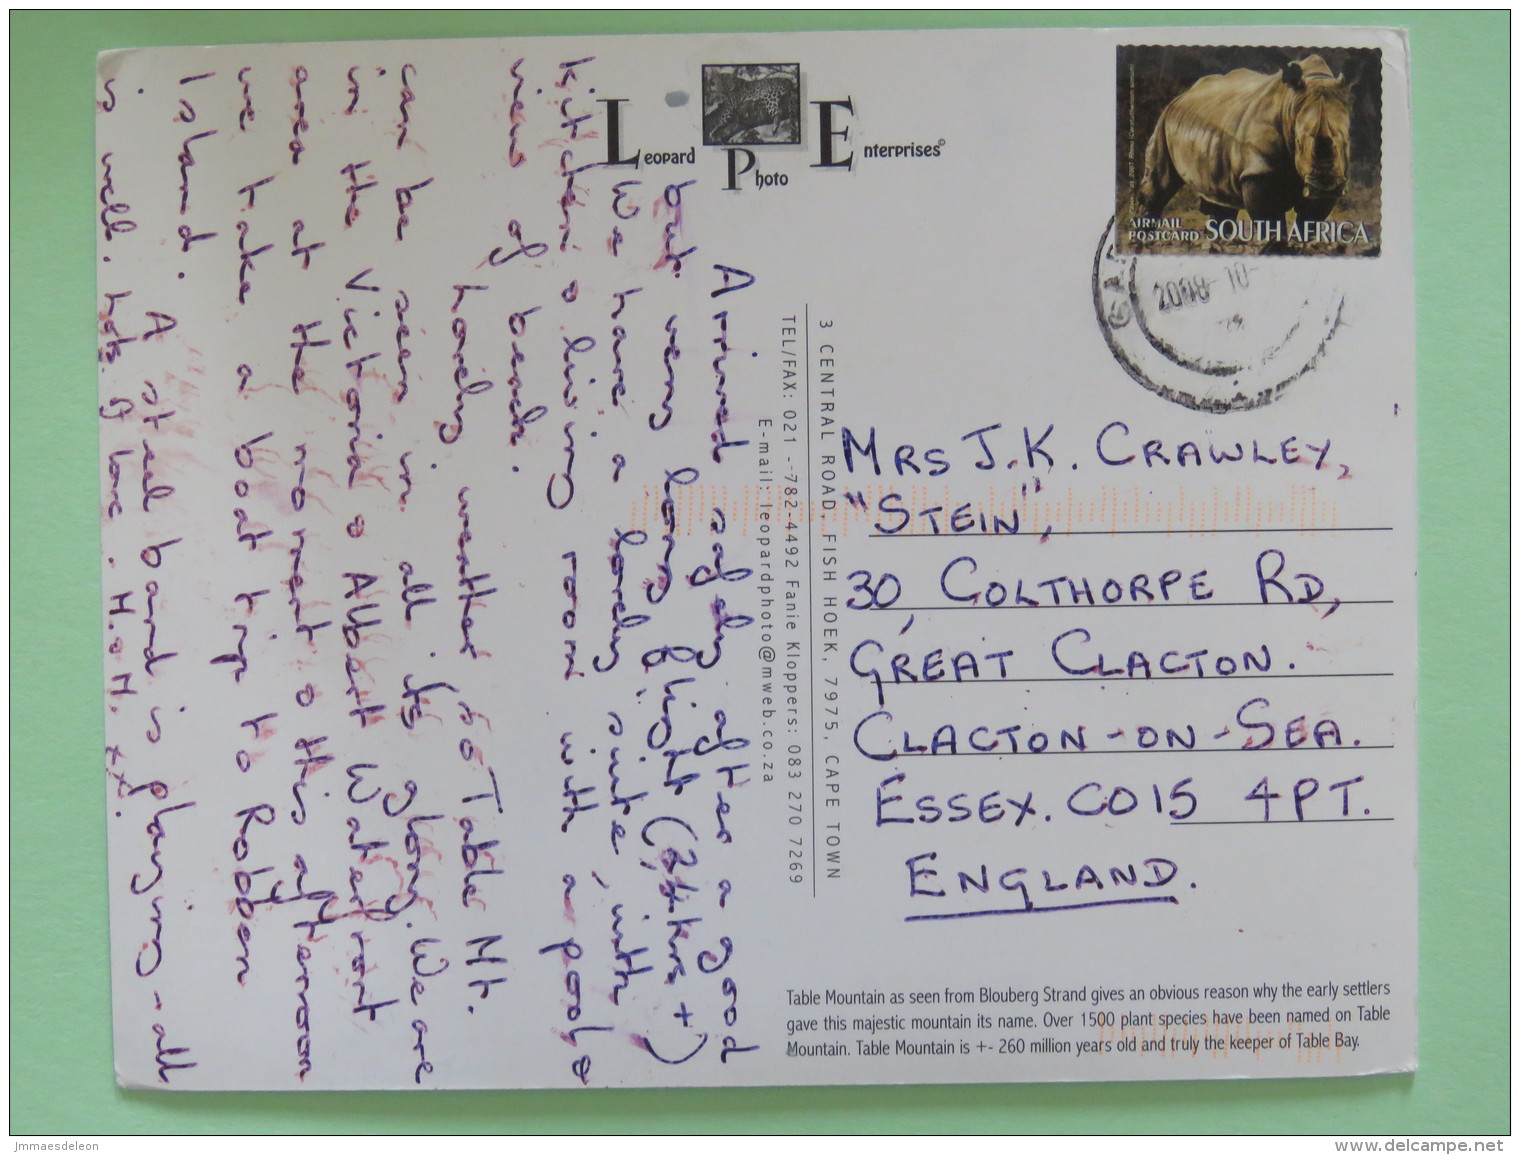 Leopard
Photo
Enterprises©
AIRMAIL
POSTCARD
SOUTH AFRICA
2008-10-
3 CENTRAL ROAD, FISH HOEK, 7975, CAPE TOWN
TEL/FAX: 021 - 782-4492 Fanie Kloppers: 083 270 7269
E-mail: leopardphoto@mweb.co.za
Arrived safely after a good
but very long flight (24hrs+)
We have a lovely suite, with
kitchen & living room with a pool &
view of beach.
Lovely weather so Table Mt.
can be seen in all its glory. We are
in the Victoria & Albert Waterfront
area at the moment & this afternoon
we take a boat trip to Robben
Island. A steel band is playing - all
is well. Lots of love. M. & M. xx.
MRS J.K. CRAWLEY,
"STEIN",
30, COLTHORPE RD,
GREAT CLACTON.
CLACTON-ON-SEA.
ESSEX. CO15 4PT.
ENGLAND.
Table Mountain as seen from Blouberg Strand gives an obvious reason why the early settlers
gave this majestic mountain its name. Over 1500 plant species have been named on Table
Mountain. Table Mountain is +- 260 million years old and truly the keeper of Table Bay.
Jmmaesdeleon
www.delcampe.net